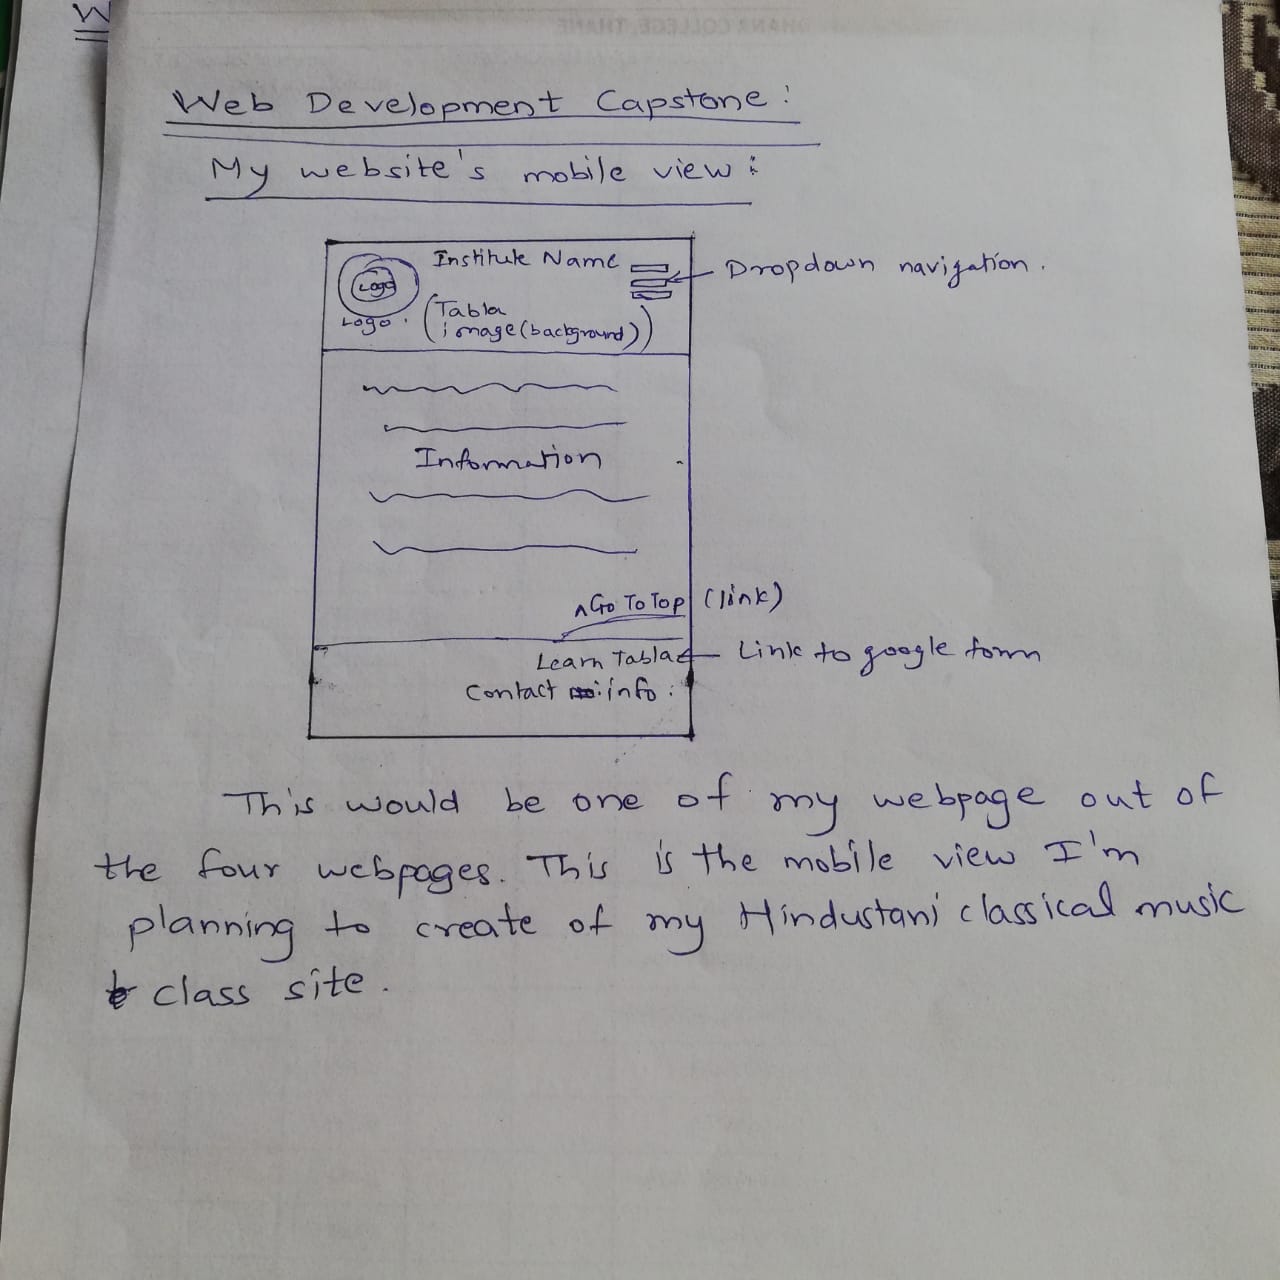 W
Web Development Capstone:
My website's mobile view:
Institute Name
Logo
Logo.
(Tabla
image (background))
Dropdown navigation.
Information
^Go To Top (link)
Learn Tabla
Link to google form
Contact : info :
This would be one of my webpage out of
the four webpages. This is the mobile view I'm
planning to create of my Hindustani classical music
class site.